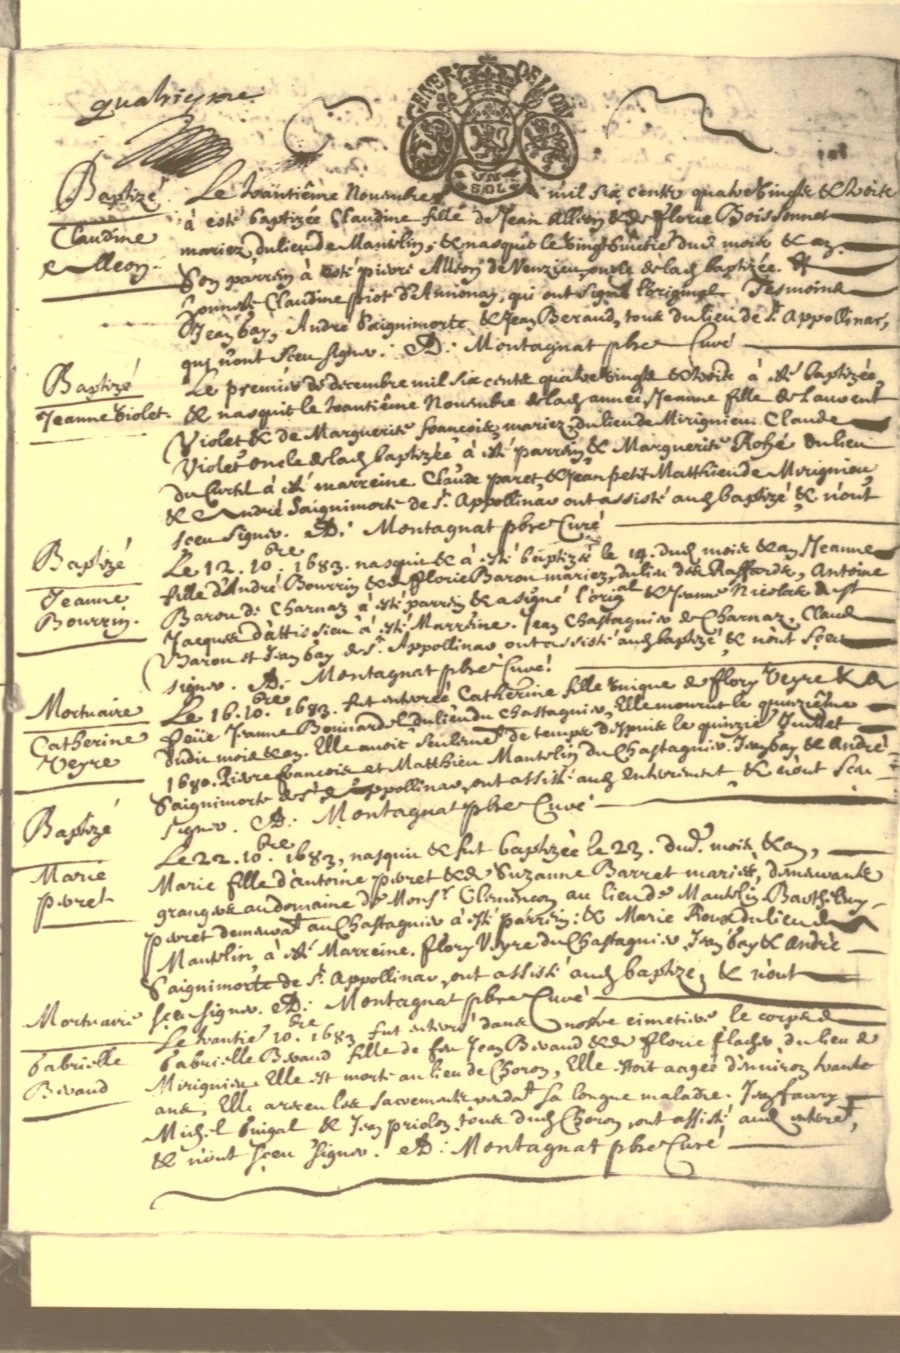 quatriyme
GENER DE LION
UN SOL
Baptizé Le trantième Novembre mil six cents quatre vingts & trois
Claudine Alleon. à esté baptizée Claudine fille de Jean Alleon & de Florie Boissonnet
mariez, du lieu de Mantelin, & nasquit le vingt du mois & an.
Son parrein à esté pierre Alleon de Venzieu, oncle de lad baptizée. &
Claudine piot d'Annonay, qui ont signé l'original Tesmoins
Jean bay, André Saignimorte & Jean Beraud, tous du lieu de St Appollinar,
qui n'ont sceu signer. Montagnat pbre Curé
Baptizé Le premier de decembre mil six cents quatre vingts & trois à esté baptizée,
Jeanne Violet & nasquit le trantième Novembre de lad année, Jeanne fille de Laurent
Violet & de Marguerite françois, mariez, du lieu de Mirignieu. Claude
Violet oncle de lad baptizée à esté parrein, & Marguerite Rohé du lieu
du Curtil à esté marreine. Claude paret, & Jean petit Matthieu de Mirignieu,
& André Saignimorte de St. Appollinar ont assisté aud baptizé & n'ont
sceu signer. Montagnat pbre Curé
Baptizé Le 12. 10.bre 1683. nasquit & à esté baptizée le 14. dud mois & an Jeanne
Jeanne Bourrin. fille d'André Bourrin & de Florie Baron mariez, du lieu des Raffords, Antoine
Baron de Charnas à esté parrein & a signé l'orig.al & Jeanne Nicolas de St
Jacques d'attissieu à esté Marreine. Jean Chastagnier de Charnaz, Claude
Baron et Jean bay de St. Appollinar ont assisté aud baptizé & n'ont sceu
signer. Montagnat pbre Curé.
Mortuaire Le 16. 10.bre 1683. fut enterrée Catherine fille unique de flory Veyre & de
Catherine Veyre feüe Jeanne du lieu du Chastagnier, Elle mourut le quinzième
dudit mois & an. Elle avoit seulem.t de temps depuis le quinzie Juillet
1680. Pierre françois et Matthieu Mantelin du Chastagnier. Jean bay & André
Saignimorte de St Appollinar, ont assisté aud Enterrement & n'ont sceu
signer. Montagnat pbre Curé
Baptizé Le 22. 10.bre 1683, nasquit & fut baptizée le 23. dud. mois & an,
Marie pivret Marie fille d'antoine pivret & de Suzanne Barret mariés, demeurants
grangers au domaine de Monsr Clemencon au lieu de Mantelin,
pivret demeurat au Chastagnier à esté parrein; & Marie Roux du lieu de
Mantelin à esté Marreine. flory Veyre du Chastagnier, Jean bay & André
Saignimorte de St. Appollinar, ont assisté aud baptizé, & n'ont
sceu signer. Montagnat pbre Curé
Mortuaire Le trantie 10.bre 1683 fut enterré dans nostre cimetiere le corps de
Gabrielle Beraud Gabrielle Beraud fille de feu Jean Beraud & de Florie flacher, du lieu de
Mirignieu Elle est morte au lieu de Choron, Elle estoit aagée d'environ trante
ans, Elle a receu les sacrements pendat sa longue maladie. Jean faury
Michel & Jean priolon, tous dud Choron, ont assisté aud enterret,
& n'ont sceu signer. Montagnat pbre Curé